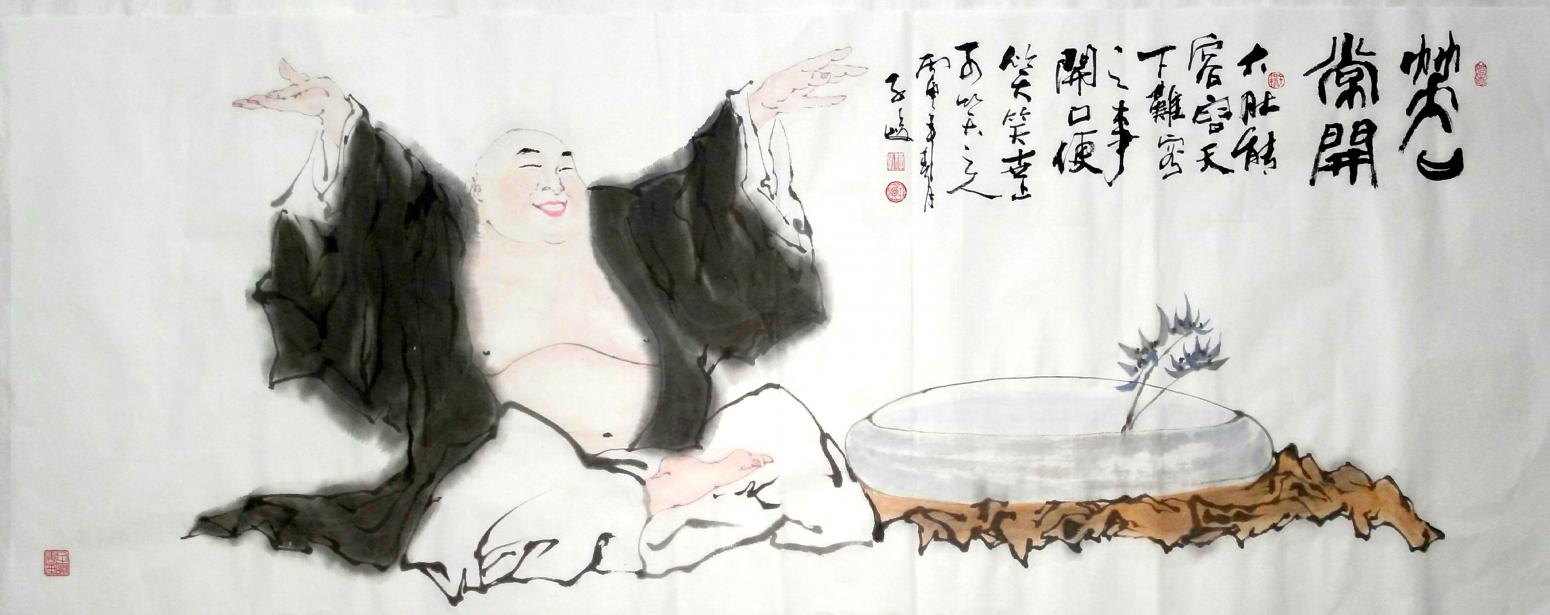 笑口
常開
大肚能
容容天
下難容
之事
開口便
笑笑世上
可笑之人
丙申年春月
子